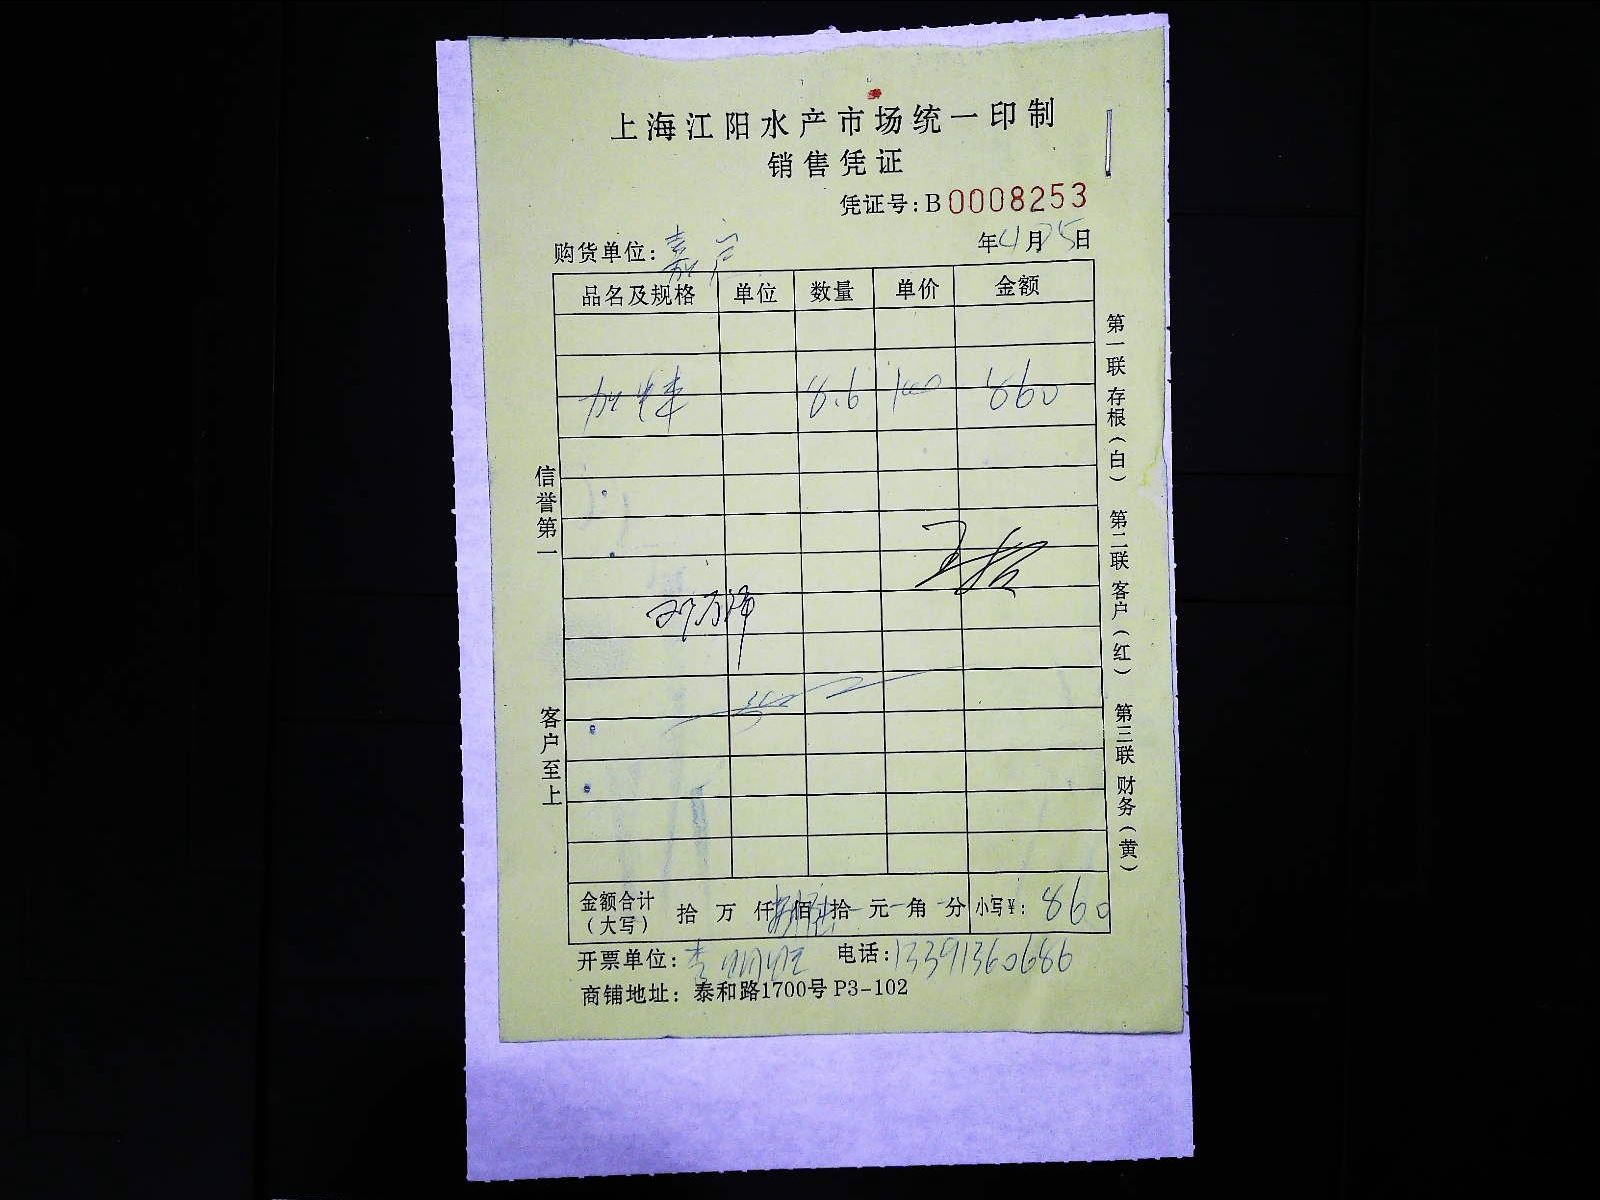 上海江阳水产市场统一印制
销售凭证
凭证号:B0008253
购货单位: 年4月25日
品名及规格 单位 数量 单价 金额
8.6 100 860
信誉第一
客户至上
第一联 存根(白) 第二联 客户(红) 第三联 财务(黄)
金额合计(大写) 拾 万 仟 佰 拾 元 角 分 小写¥: 860
开票单位: 电话:13391360686
商铺地址: 泰和路1700号 P3-102